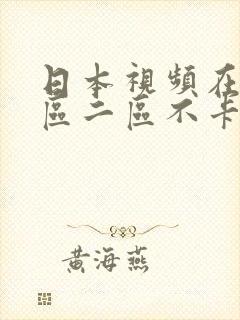 日本視頻在
區二區不卡
黃海燕